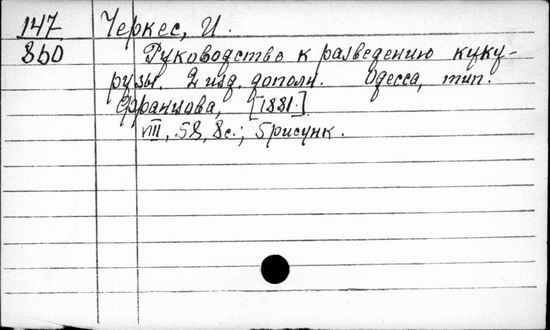 147 Черкес, И.
860 Руководство к разведению куку-
рузы. 2 изд. дополн. Одесса, тип.
Францова, [1881.]
VIII, 58, 8с.; 5 рисунк.